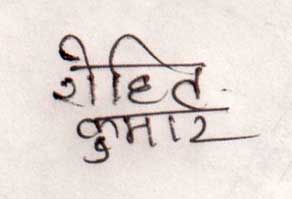 रोहित
कुमार